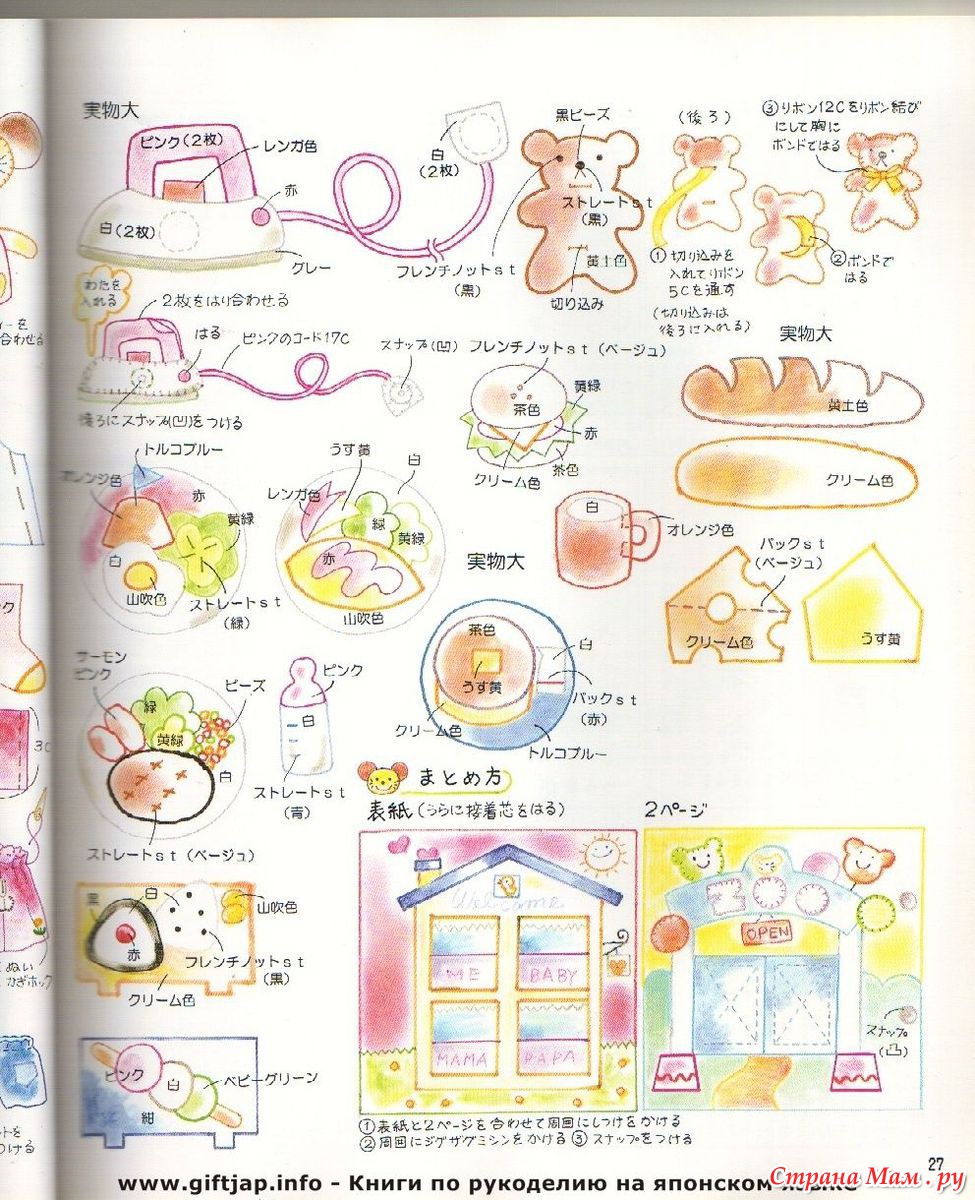 実物大
ピンク(2枚)
レンガ色
赤
白(2枚)
グレー
白
(2枚)
黒ビーズ
ストレートst
(黒)
フレンチノットst
(黒)
黄土色
切り込み
(後ろ)
①切り込みを
入れてリボン
5Cを通す
(切り込みは
後ろに入れる)
②ボンドで
はる
③リボン12Cをリボン結び
にして胸に
ボンドではる
わたを
入れる
2枚をはり合わせる
はる
ピンクのコード17C
スナップ(凹)
後ろにスナップ(凹)をつける
フレンチノットst(ベージュ)
茶色
黄緑
赤
茶色
クリーム色
実物大
黄土色
クリーム色
トルコブルー
オレンジ色
赤
黄緑
白
山吹色
ストレートst
(緑)
うす黄
白
レンガ色
緑
黄緑
赤
山吹色
実物大
白
オレンジ色
バックst
(ベージュ)
クリーム色
うす黄
茶色
白
うす黄
バックst
(赤)
クリーム色
トルコブルー
サーモン
ピンク
緑
ビーズ
黄緑
白
ストレートst(ベージュ)
ピンク
白
ストレートst
(青)
黒
白
山吹色
赤
フレンチノットst
(黒)
クリーム色
ピンク
白
ベビーグリーン
紺
まとめ方
表紙(うらに接着芯をはる)
2ページ
Welcome
ME
BABY
MAMA
PAPA
OPEN
スナップ
(凸)
①表紙と2ページを合わせて周囲にしつけをかける
②周囲にジグザグミシンをかける ③スナップをつける
27
www.giftjap.info - Книги по рукоделию на японском языке
Страна Мам.ру